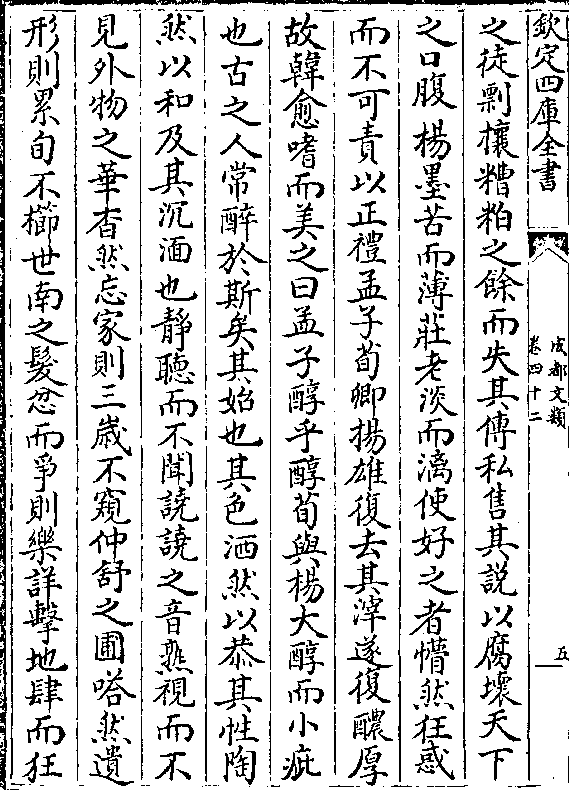 欽定四庫全書
成都文類
卷四十二
五
之徒剽攘糟粕之餘而失其傳私售其說以腐壞天下
之口腹楊墨苦而薄莊老淡而漓使好之者懵然狂惑
而不可責以正禮孟子荀卿揚雄復去其滓遂復醲厚
故韓愈嗜而美之曰孟子醇乎醇荀與楊大醇而小疵
也古之人常醉於斯矣其始也其色洒然以恭其性陶
然以和及其沉湎也靜聽而不聞譊譊之音熟視而不
見外物之華杳然忘家則三歲不窺仲舒之圃嗒然遺
形則累旬不櫛世南之髮忿而爭則樂詳擊地肆而狂